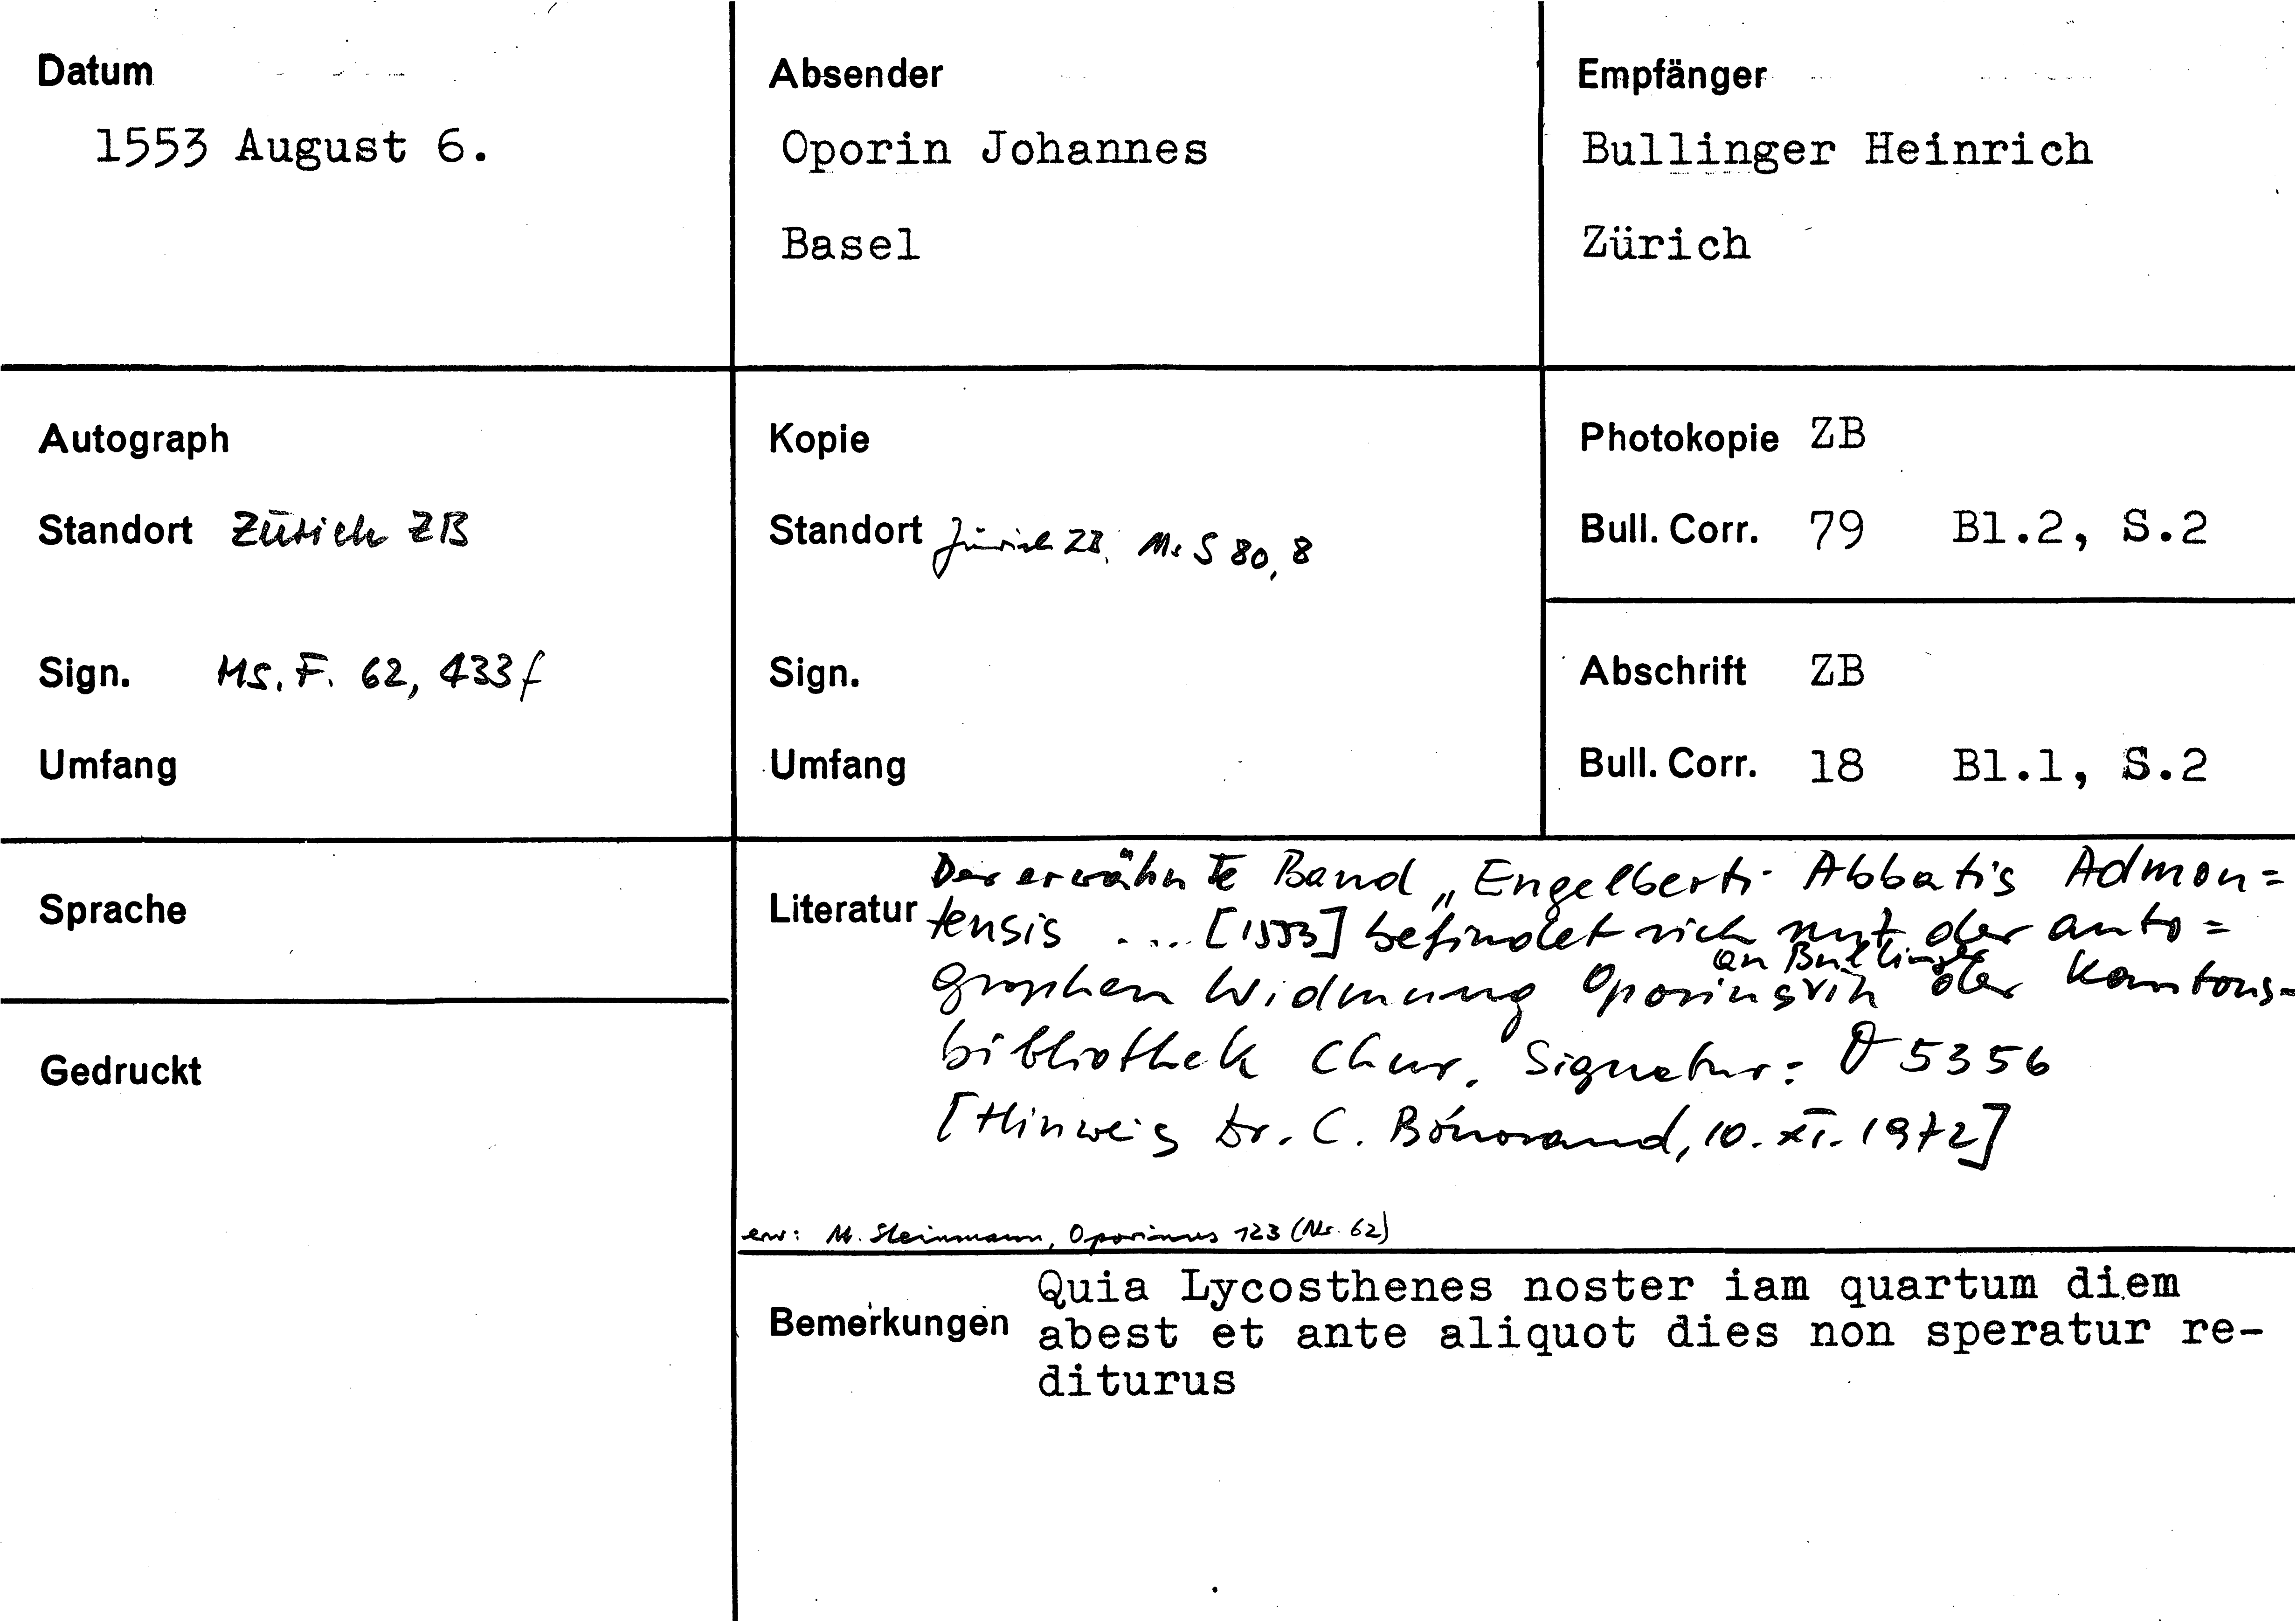 Datum
1553 August 6.
Absender
Oporin Johannes
Basel
Empfänger
Bullinger Heinrich
Zürich
Autograph
Standort Zürich ZB
Sign. Ms. F. 62, 433f
Umfang
Kopie
Standort Zürich ZB. Ms S 80, 8
Sign.
Umfang
Photokopie ZB
Bull. Corr. 79 Bl.2, S.2
Abschrift ZB
Bull. Corr. 18 Bl.1, S.2
Sprache
Gedruckt
Literatur
Der erwähnte Band „Engelberti Abbatis Admon=
tensis .... [1553] befindet sich mit der auto=
an Bullinger
graphen Widmung Oporins in der Kantons=
bibliothek Chur. Signatur: 5356
[Hinweis Dr. C. Bonorand, 10. XI. 1972]
erw: M. Steinmann, Oporinus 123 (Nr. 62)
Bemerkungen
Quia Lycosthenes noster iam quartum diem
abest et ante aliquot dies non speratur re-
diturus